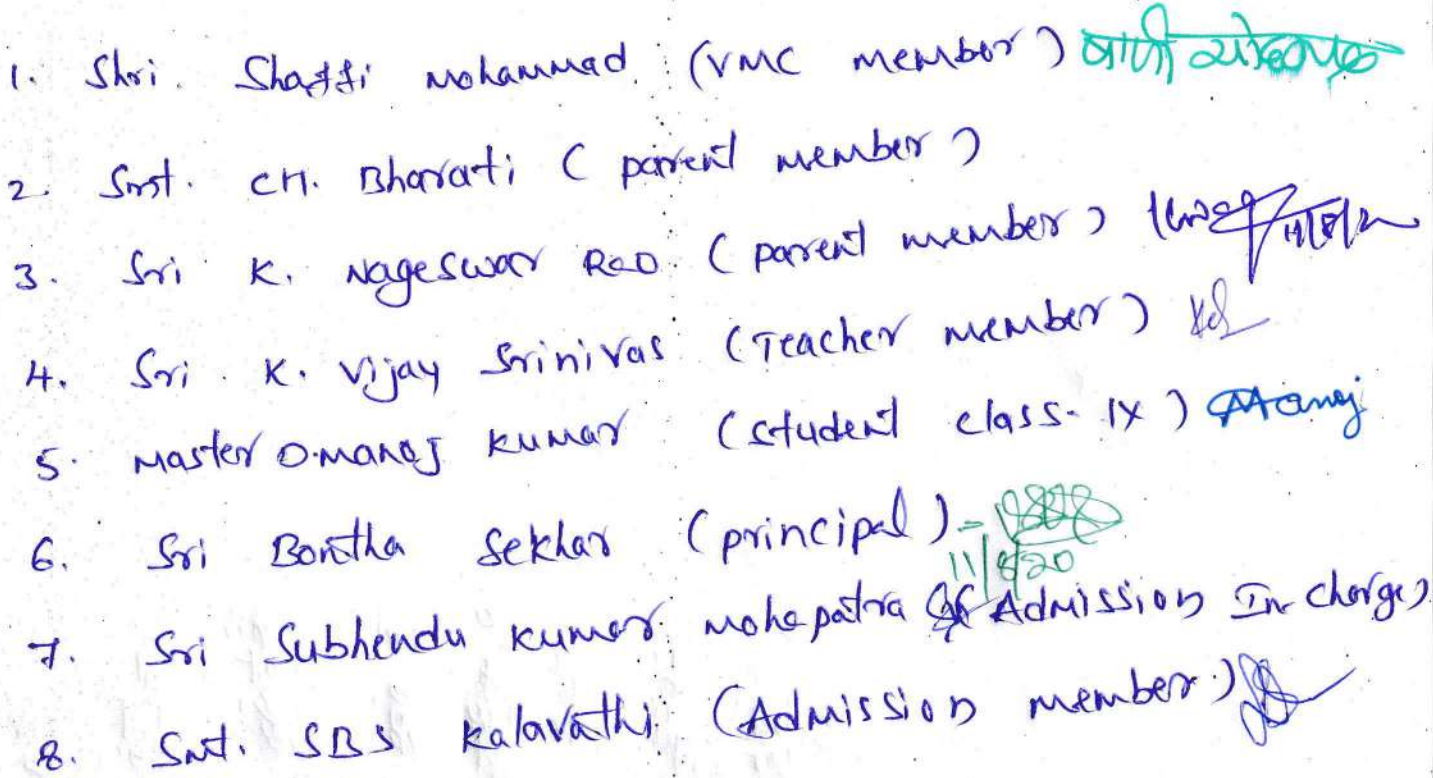 1. Shri. Shaffi Mohammad (VMC member)
2. Smt. CH. Bharati (parent member)
3. Sri K. Nageswar Rao (parent member) 11/8/20
4. Sri. K. Vijay Srinivas (Teacher member)
5. Master O.Manoj Kumar (student class-IX) Manoj
6. Sri Bontha Sekhar (principal) - 11/8/20
7. Sri Subhendu Kumar Mohapatra (Admission In charge)
8. Smt. SBS Kalavathi (Admission member)